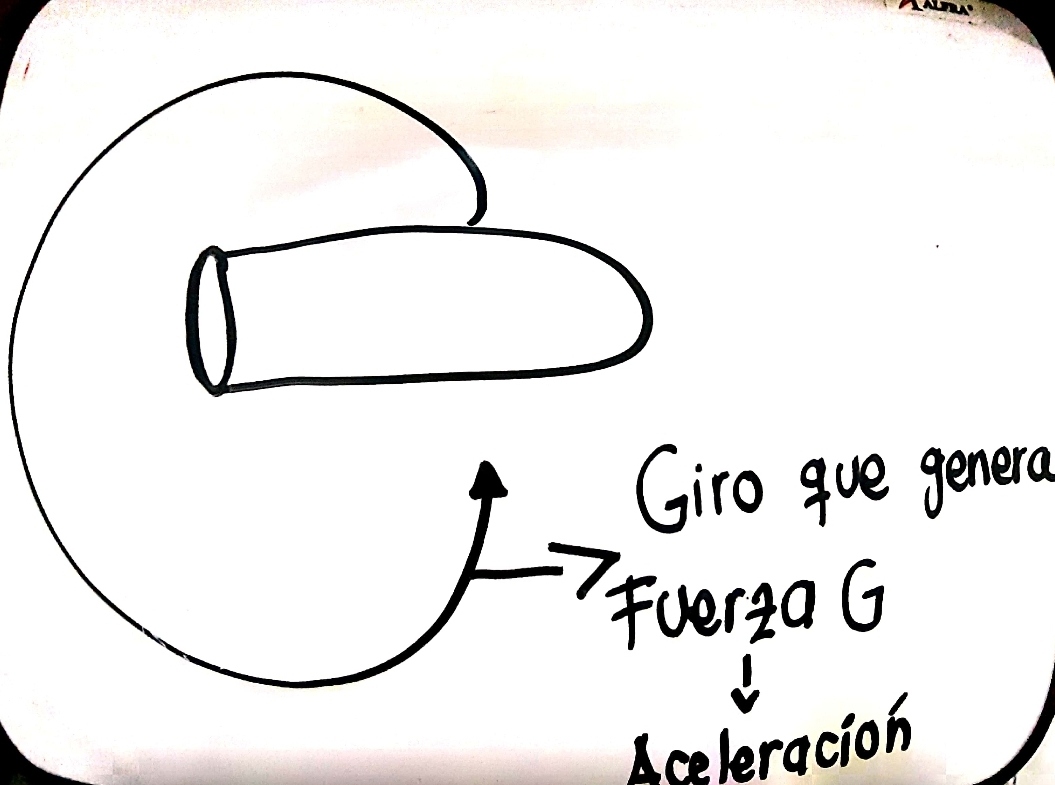 ALFRA
Giro que genera
Fuerza G
Aceleración